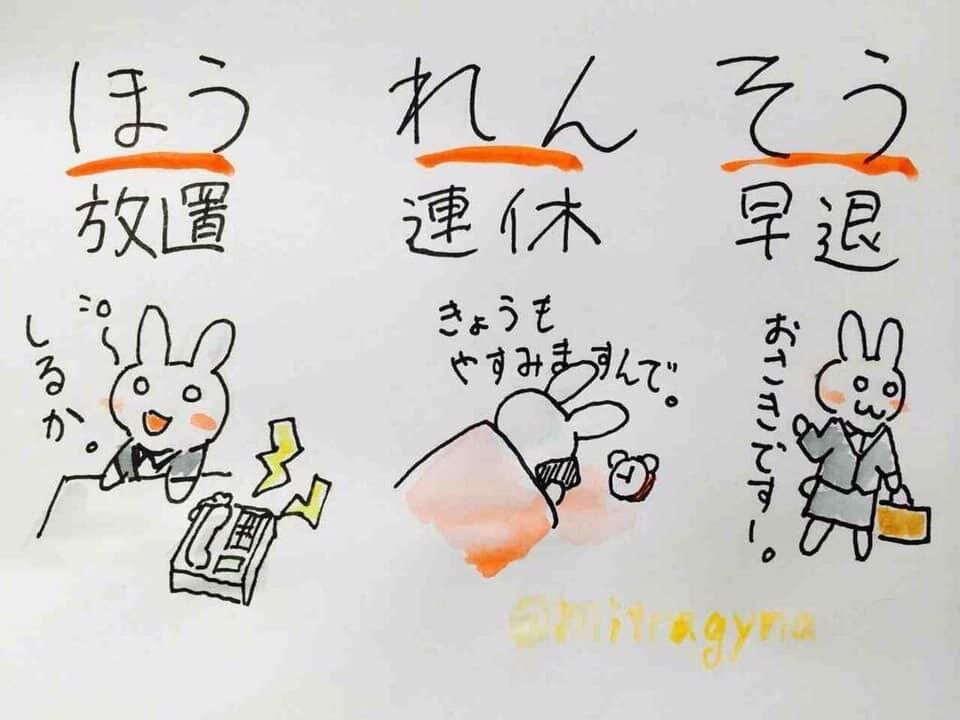 ほう れん そう
放置 連休 早退
しるか。
きょうも
やすみますんで。
おさきですー。
@Mitragyna